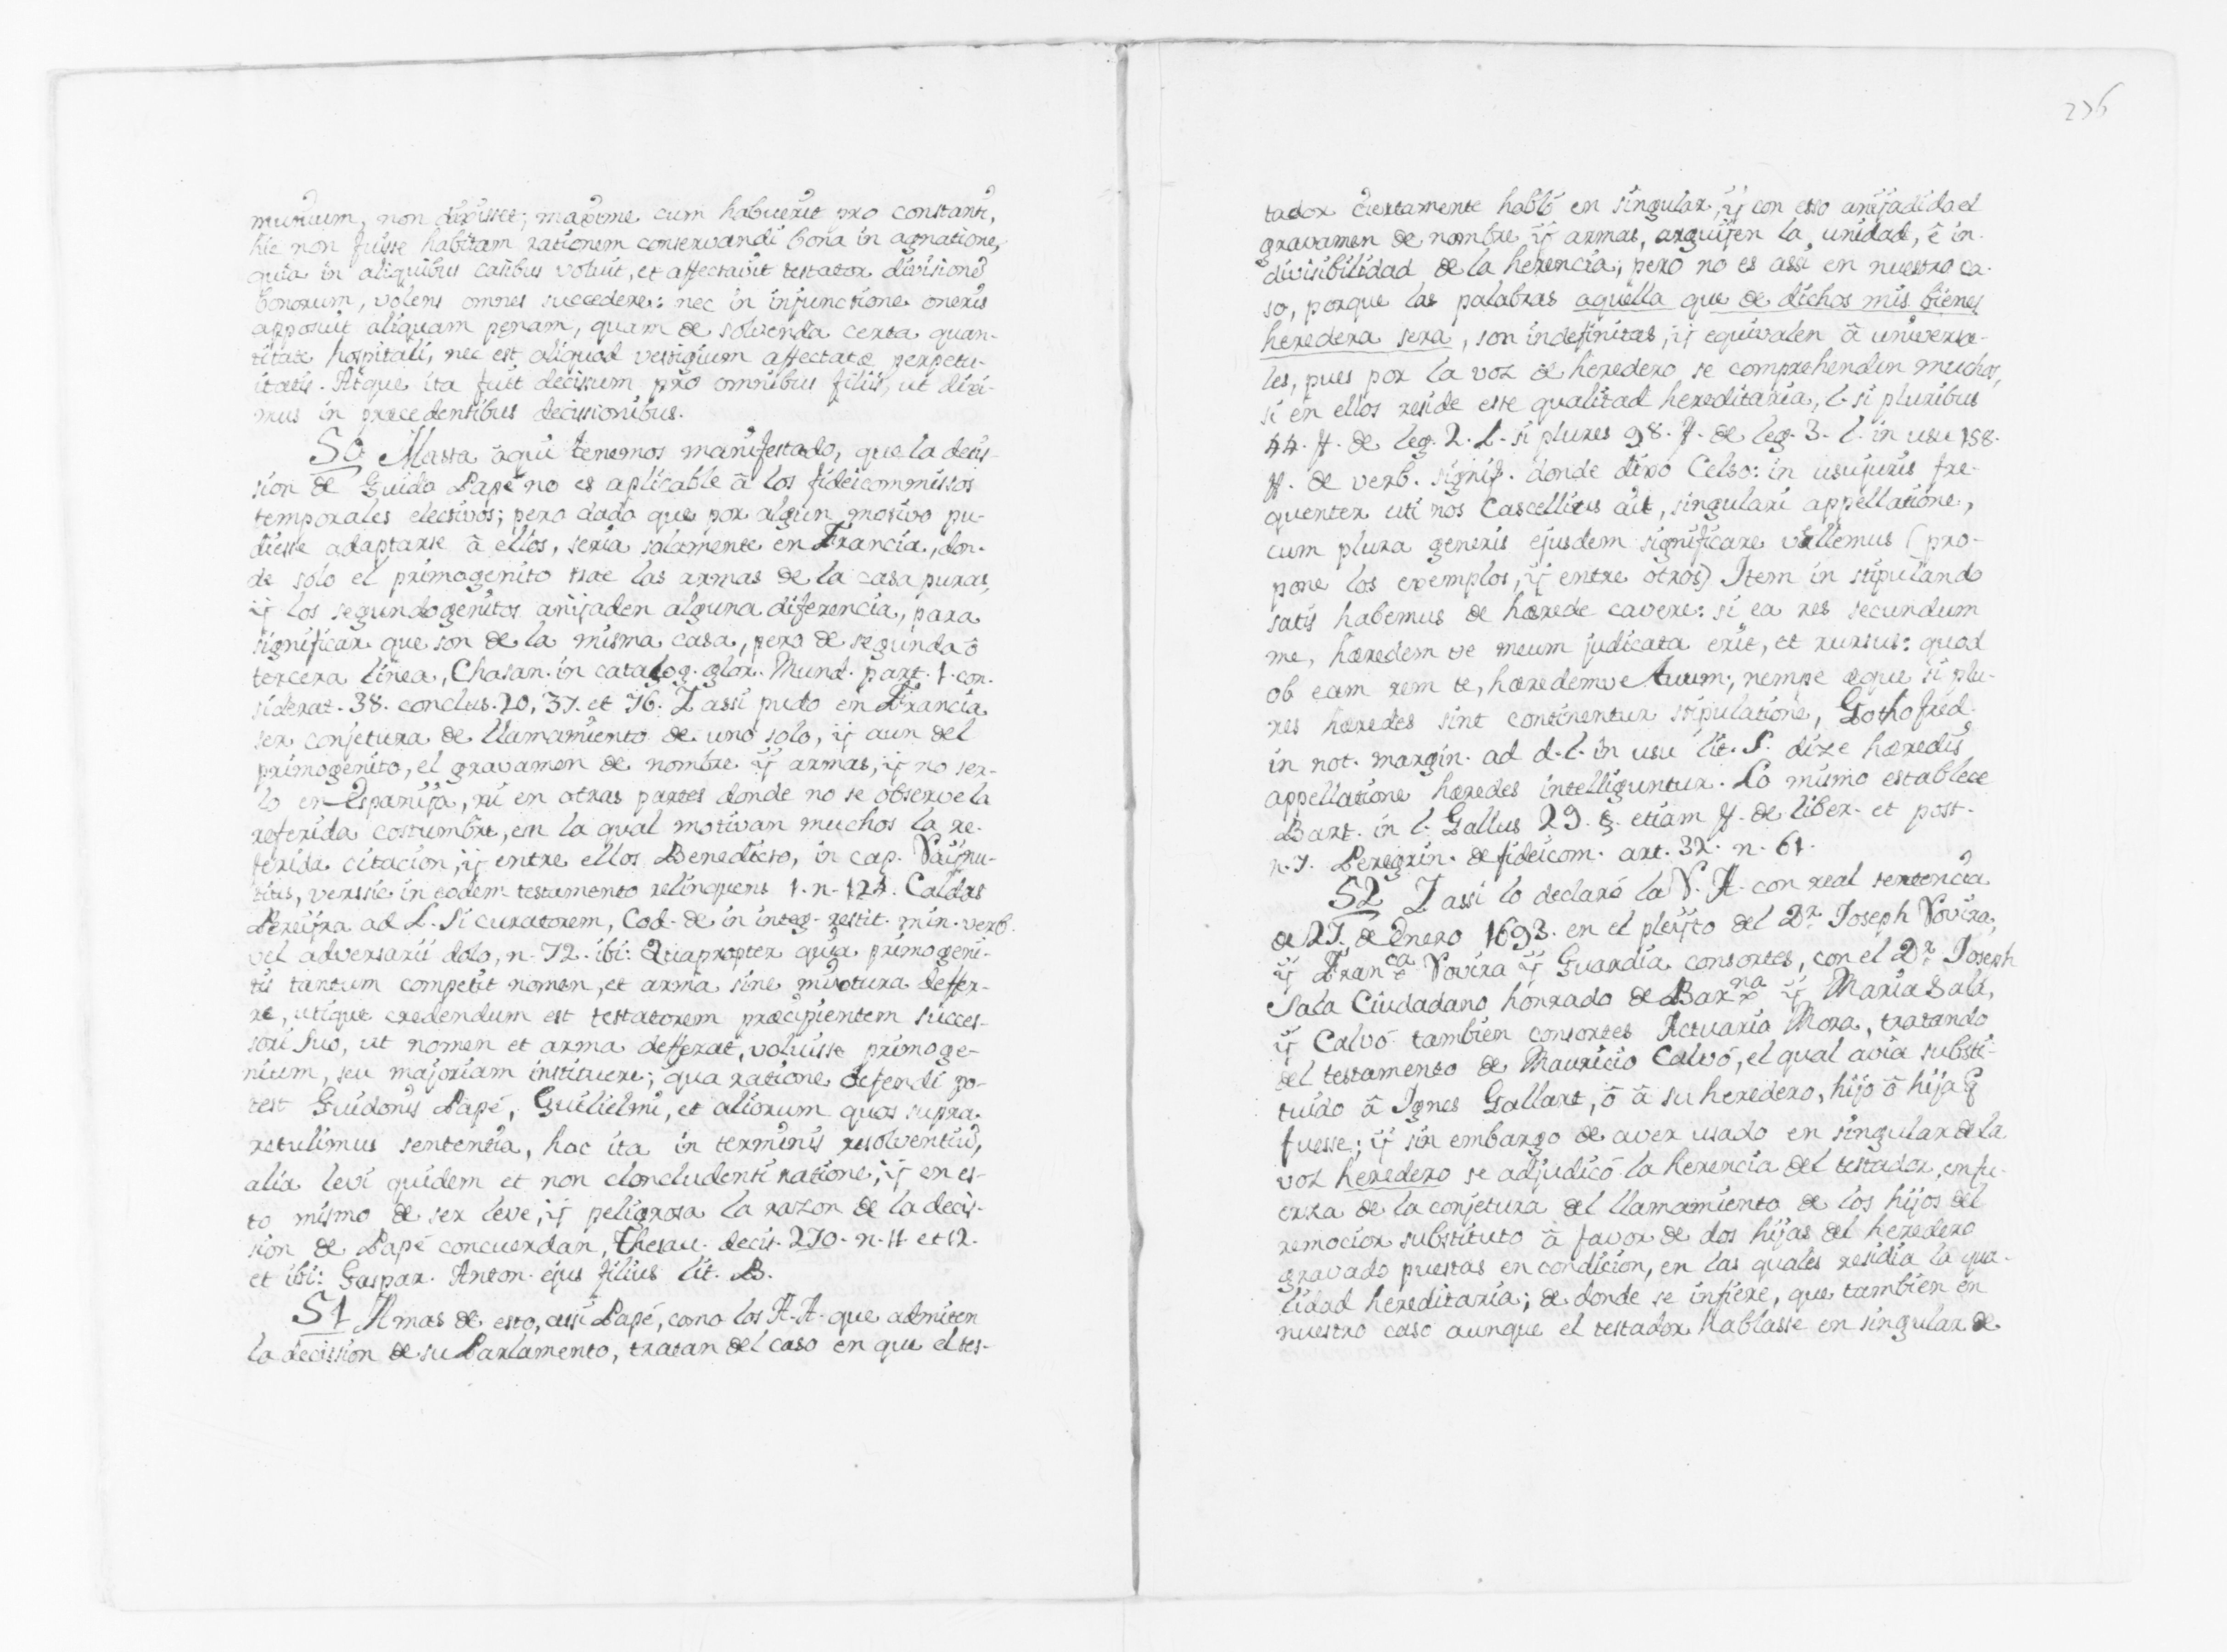 munium, non dixisset; maxime cum habuerit pro constanti,
hic non fuisse habitam rationem conservandi bona in agnatione,
quia in aliquibus casibus voluit, et affectavit testator divisione
bonorum, volens omnes succedere: nec in injunctione oneris
apposuit aliquam penam, quam de solvenda certa quan-
titate hospitali, nec est aliquod vestigium affectatæ perpetu-
itatis. Atque ita fuit decissum pro omnibus filiis, ut dixi-
mus in præcedentibus decissionibus.
50 Massa aqui tenemos manifestado, que la decis-
sion de Guido Papé no es aplicable â los fideicommissos
temporales electivos; pero dado que por algun motivo pu-
diesse adaptarse â ellos, seria solamente en Francia, don-
de solo el primogenito trae las armas de la casa puras,
ÿ los segundogenitos anÿaden alguna diferencia, para
significar que son de la misma casa, pero de segunda ô
tercera linea, Chasan. in catalog. glor. Mund. part. 1. con-
siderat. 38. conclus. 20, 37. et 76. I assi pudo en Francia
ser conjetura de llamamiento de uno solo, ÿ aun del
primogenito, el gravamen de nombre ÿ armas, ÿ no ser-
lo en Espanÿa, ni en otras partes donde no se observe la
referida costumbre, en la qual motivan muchos la re-
ferida citacion, ÿ entre ellos Benedicto, in cap. Raÿnu-
tius, verssic in eodem testamento relinquens 1. n. 124. Caldas
Pereÿra ad L. Si curatorem, Cod. de in integ. restit. min. verb.
vel adversarii dolo, n. 72. ibi: Quapropter quia primogeni-
tis tantum competit nomen, et arma sine mixtura deffer-
re, utique credendum est testatorem præcipientem succes-
sori suo, ut nomen et arma defferat, voluisse primoge-
nium, seu majoriam instituere; qua ratione defendi po-
test Guidonis Papé, Guilielmi, et aliorum quos supra
retulimus sententia, hac ita in terminis resolventiu,
alia levi quidem et non cloncludenti ratione; ÿ en es-
to mismo de ser leve, ÿ peligrosa la razon de la decis-
sion de Papé concuerdan, Thesau. decis. 270. n. 11. et 12.
et ibi: Gaspar. Anton. ejus filius lit. B.
51 Amas de esto, assi Papé, como los A. A. que admiten
la decission de su Parlamento, tratan del caso en que el tes-
236
tador ciertamente habló en singular, ÿ con esso anÿadido el
gravamen de nombre ÿ armas, arguÿen la unidad, ê in-
divisibilidad de la herencia; pero no es assi en nuestro ca-
so, porque las palabras aquella que de dichos mis bienes
heredera sera, son indefinitas, ÿ equivalen â universa-
les, pues por la voz de heredero se comprehenden muchos,
si en ellos reside esse qualitad hereditaria, l. si pluribus
44. ff. de leg. 2. L. si plures 98. ff. de leg. 3. l. in usu 158.
ff. de verb. signif. donde dixo Celso: in usujuris fre-
quenter uti nos Cascellius ait, singulari appellatione,
cum plura generis ejusdem significare vellemus (pro-
pone los exemplos, ÿ entre otros) Item in stipulando
satis habemus de hærede cavere: si ea res secundum
me, hæredem ve meum judicata erit, et rursus: quod
ob eam rem te, hæredemve tuum; nempe æque si plu-
res hæredes sint continentur stipulatione, Gothofred.
in not. margin. ad d. l. in usu lit. S. dize hæredis
appellatione hæredes intelliguntur. Lo mismo establece
Bart. in l. Gallus 29. §. etiam ff. de liber. et post.
n. 7. Peregrin. de fideicom. art. 32. n. 61.
52 I assi lo declaró la R. A. con real sentencia
de 27. de Enero 1693. en el pleÿto del Dr. Joseph Rovira,
ÿ Franca. Rovira ÿ Guardia consortes, con el Dr. Joseph
Sala Ciudadano honrado de Barna. ÿ Maria Sala,
ÿ Calvó tambien consortes Actuario Mora, tratando
del testamento de Mauricio Calvó, el qual avia substi-
tuido â Ignes Gallart, ô â su heredero, hijo ô hija q
fuesse; ÿ sin embargo de aver usado en singular de la
voz heredero se adjudicó la herencia del testador, en fu-
erza de la conjetura del llamamiento de los hijos del
remocior substituto â favor de dos hijas del heredero
gravado puestas en condicion, en las quales residia la qua-
lidad hereditaria; de donde se infiere, que tambien en
nuestro caso aunque el testador hablasse en singular de